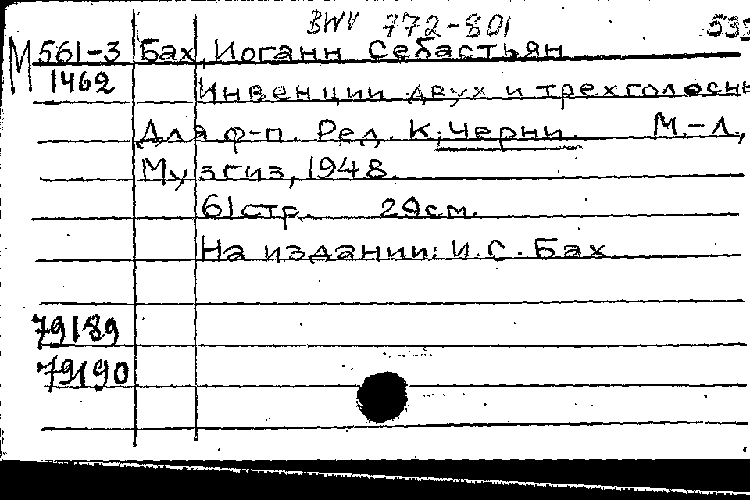 BWV 772-801
М 561-3 Бах, Иоганн Себастьян
1462 Инвенции двух и трехголосн
Для ф-п. Ред. К. Черни. М.-Л.,
Музгиз, 1948.
61 стр. 29 см.
На издании: И.С. Бах
79189
79190